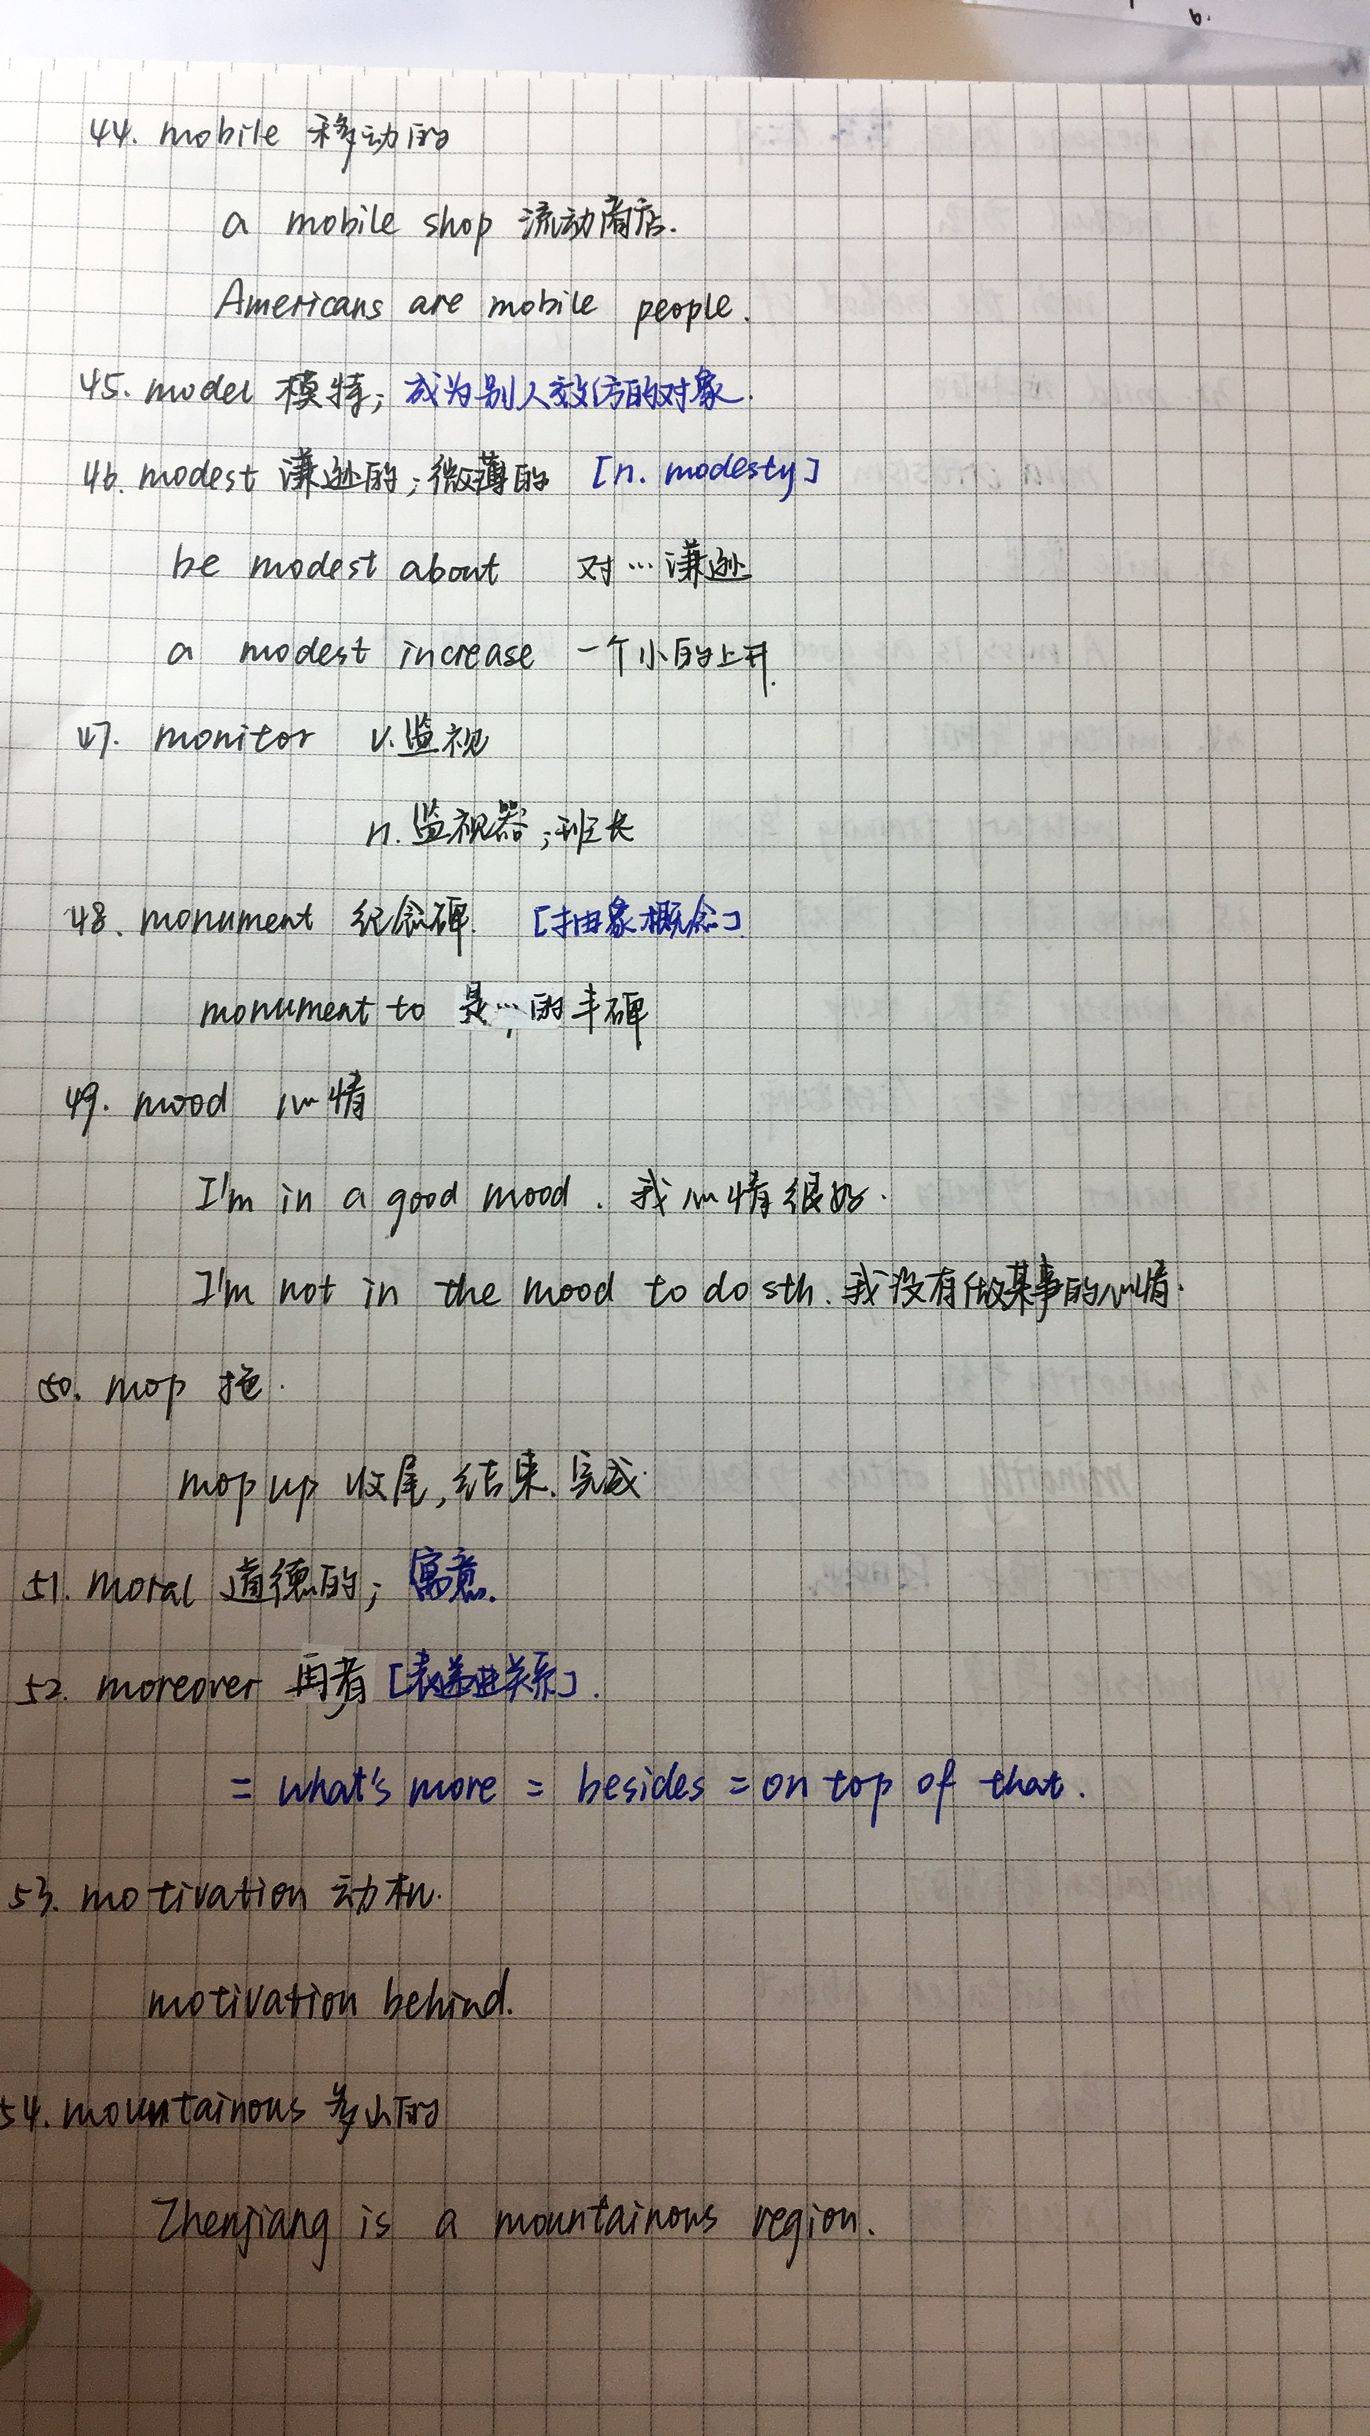 44. mobile 移动的
a mobile shop 流动商店.
Americans are mobile people.
45. model 模特; 成为别人效仿的对象.
46. modest 谦逊的; 微薄的 [n. modesty]
be modest about 对…谦逊
a modest increase 一个小的上升.
47. monitor v. 监视
n. 监视器; 班长
48. monument 纪念碑. [抽象概念]
monument to 是…的丰碑
49. mood 心情
I'm in a good mood. 我心情很好.
I'm not in the mood to do sth. 我没有做某事的心情.
50. mop 拖.
mop up 收尾, 结束. 完成.
51. moral 道德的; 寓意.
52. moreover 再者 [表递进关系].
= what's more = besides = on top of that.
53. motivation 动机.
motivation behind.
54. mountainous 多山的
Zhenjiang is a mountainous region.